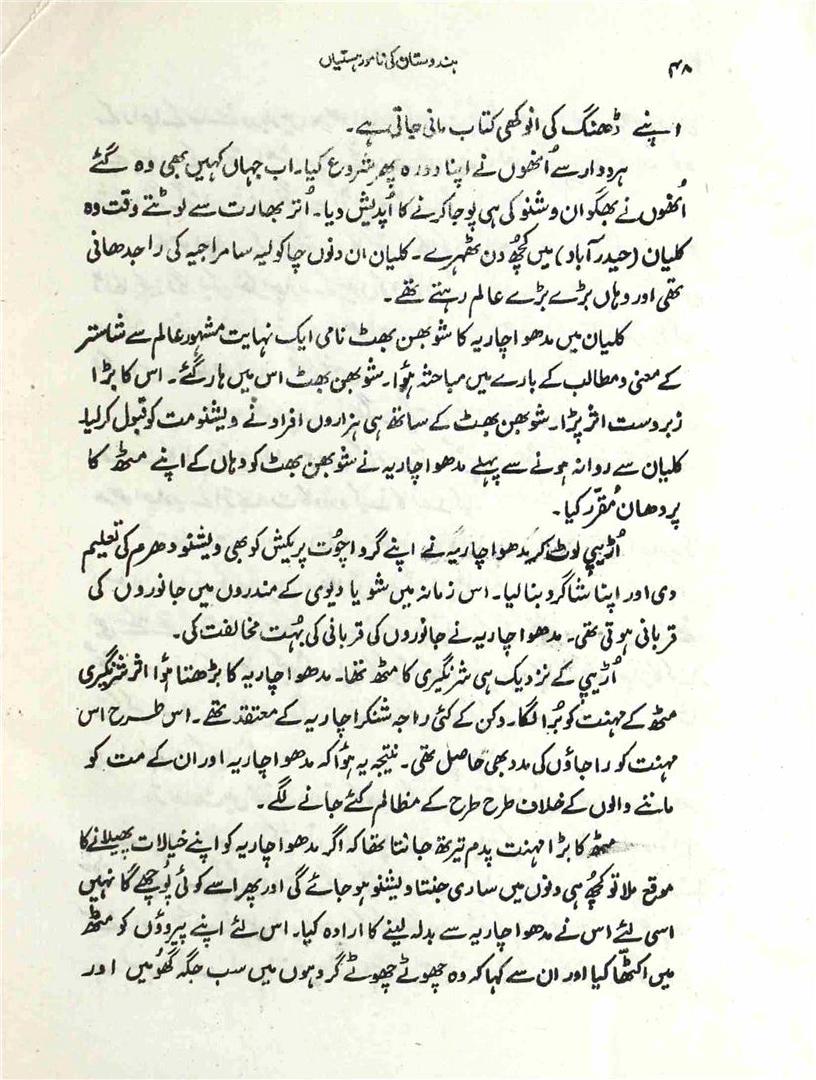 ۴۸
ہندوستان کی نامور ہستیاں
اپنے ڈھنگ کی انوکھی کتاب مانی جاتی ہے۔
ہردوار سے اُنھوں نے اپنا دورہ پھر شروع کیا۔ اب جہاں کہیں بھی وہ گئے
اُنھوں نے بھگوان وشنو کی ہی پوجا کرنے کا اُپدیش دیا۔ اُتر بھارت سے لوٹتے وقت وہ
کلیان (حیدرآباد) میں کچھ دن ٹھہرے۔ کلیان ان دنوں چاکولیہ سامراجیہ کی راجدھانی
تھی اور وہاں بڑے بڑے عالم رہتے تھے۔
کلیان میں مدھواچاریہ کا شوبھن بھٹ نامی ایک نہایت مشہور عالم سے شاستر
کے معنی و مطالب کے بارے میں مباحثہ ہؤا۔ شوبھن بھٹ اس میں ہار گئے۔ اس کا بڑا
زبردست اثر پڑا۔ شوبھن بھٹ کے ساتھ ہی ہزاروں افراد نے ویشنو مت کو قبول کرلیا۔
کلیان سے روانہ ہونے سے پہلے مدھواچاریہ نے شوبھن بھٹ کو وہاں کے اپنے مٹھ کا
پردھان مُقرّر کیا۔
اُڑیپی لوٹ کر مدھواچاریہ نے اپنے گرو اچوُت پریکش کو بھی ویشنو دھرم کی تعلیم
دی اور اپنا شاگرد بنا لیا۔ اس زمانہ میں شو یا دیوی کے مندروں میں جانوروں کی
قربانی ہوتی تھی۔ مدھواچاریہ نے جانوروں کی قربانی کی بہُت مخالفت کی۔
اُڑیپی کے نزدیک ہی شرنگیری کا مٹھ تھا۔ مدھواچاریہ کا بڑھتا ہؤا اثر شرنگیری
مٹھ کے مہنت کو بُرا لگا۔ دکن کے کئی راجہ شنکراچاریہ کے معتقد تھے۔ اس طرح اس
مہنت کو راجاؤں کی مدد بھی حاصل تھی۔ نتیجہ یہ ہؤا کہ مدھواچاریہ اور ان کے مت کو
ماننے والوں کے خلاف طرح طرح کے مظالم کئے جانے لگے۔
مٹھ کا بڑا مہنت پدم تیرتھ جانتا تھا کہ اگر مدھواچاریہ کو اپنے خیالات پھیلانے کا
موقع ملا تو کچھ ہی دنوں میں ساری جنتا ویشنو ہو جائے گی اور پھر اسے کوئی پُوچھے گا نہیں
اسی لئے اس نے مدھواچاریہ سے بدلہ لینے کا ارادہ کیا۔ اس لئے اپنے پیروؤں کو مٹھ
میں اکٹھّا کیا اور ان سے کہا کہ وہ چھوٹے چھوٹے گروہوں میں سب جگہ گھُومیں اور